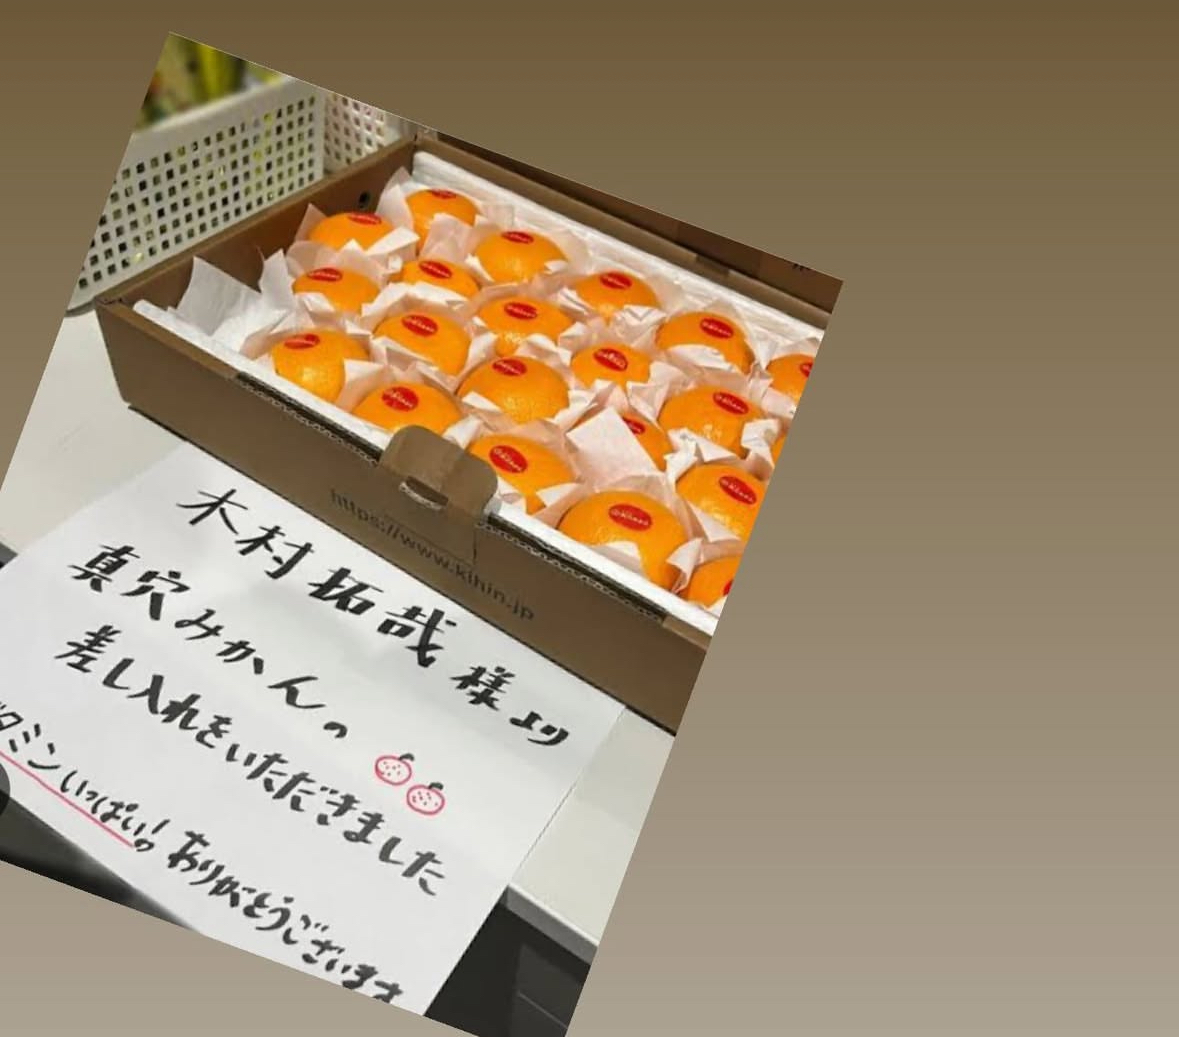 https://www.kihin.jp
木村拓哉様より
真穴みかんの
差し入れをいただきました
タミンいっぱいっ!
ありがとうございます